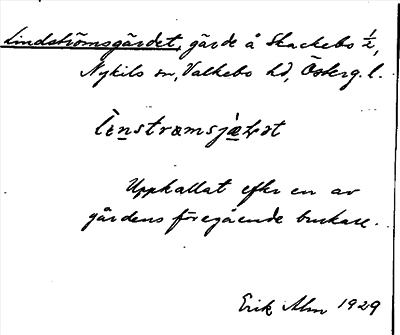 Lindströmsgärdet, gärde å Skackebo ½,
Nykils sn, Valkebo hd, Österg. l.
Uppkallat efter en av
gårdens föregående brukare.
Erik Alm 1929